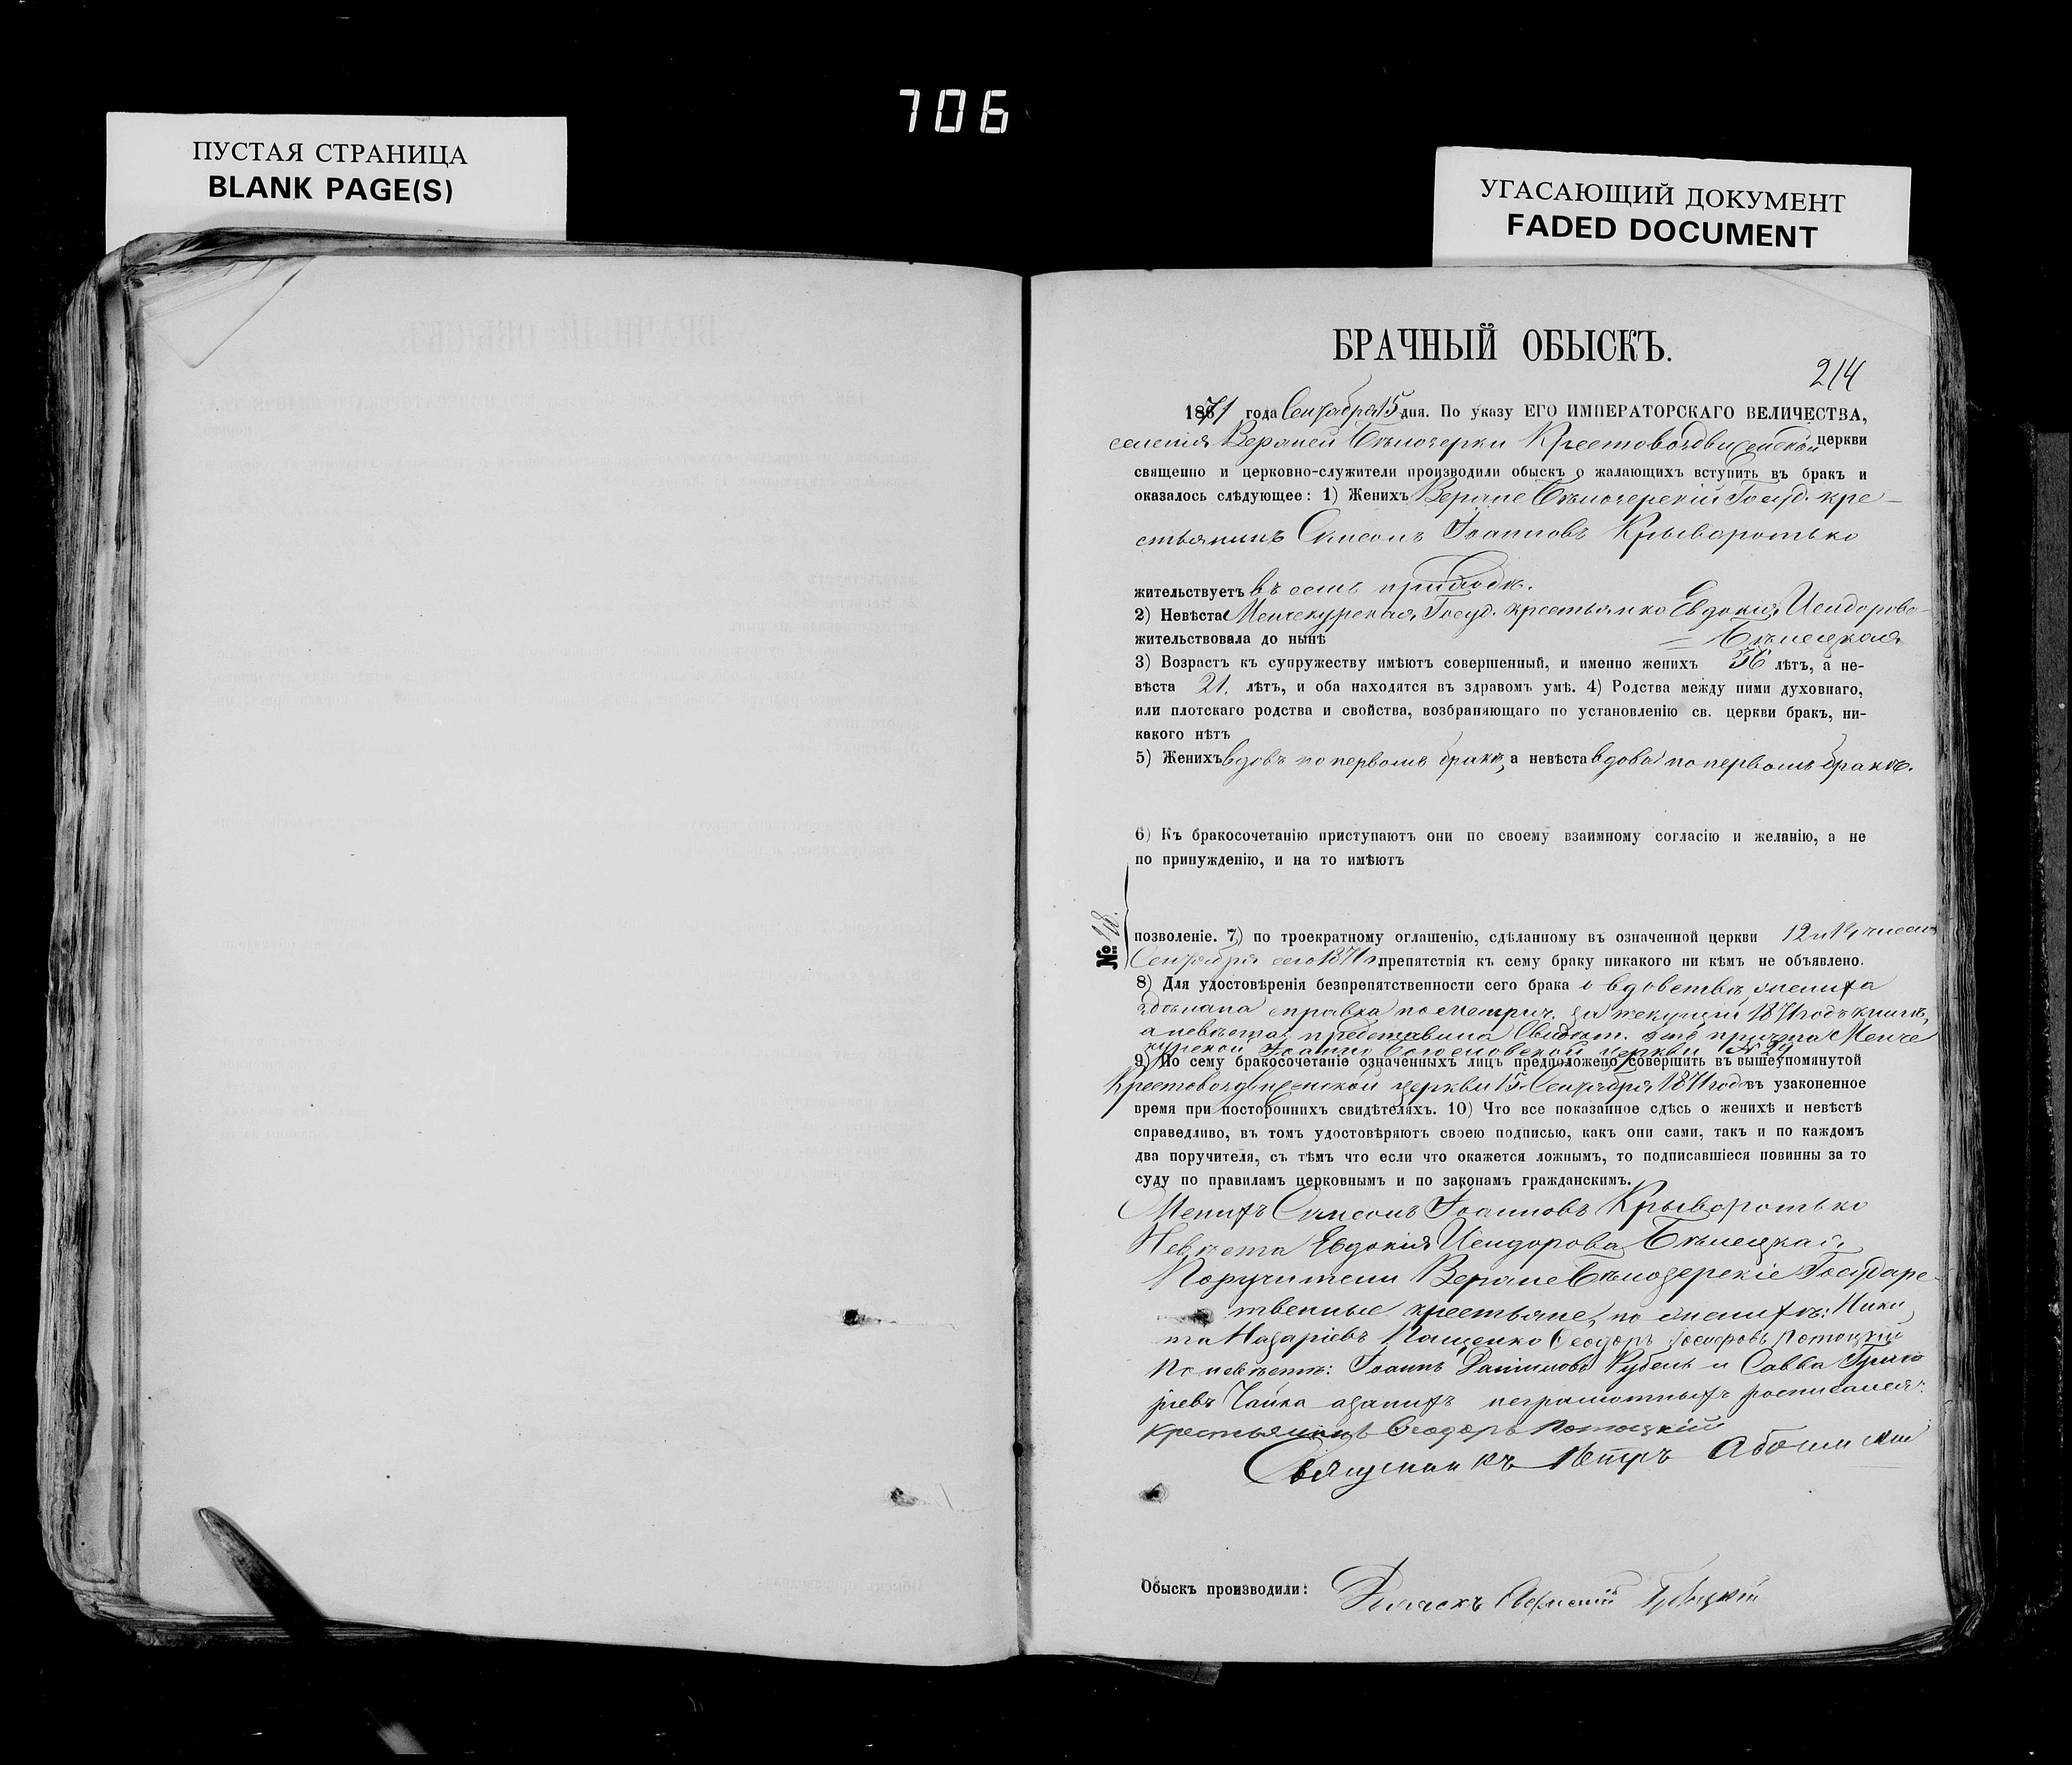 706
ПУСТАЯ СТРАНИЦА
BLANK PAGE(S)
УГАСАЮЩИЙ ДОКУМЕНТ
FADED DOCUMENT
БРАЧНЫЙ ОБЫСКЪ.
214
1871 года Сентября 15 дня. По указу ЕГО ИМПЕРАТОРСКАГО ВЕЛИЧЕСТВА,
селенія Верхней Бѣлозерки Крестовоздвиженской церкви
священно и церковно-служители производили обыскъ о жалающихъ вступить въ бракъ и
оказалось слѣдующее: 1) Женихъ Верхне Бѣлозерскій Госуд. кре-
стьянинъ Симеонъ Іоанновъ Крыворотько
жительствуетъ въ семъ приходѣ.
2) Невѣста Менчекурская Госуд. крестьянка Евдокія Исидорова
жительствовала до нынѣ = Бѣлецкая
3) Возрастъ къ супружеству имѣютъ совершенный, и именно женихъ 36 лѣтъ, а не-
вѣста 21. лѣтъ, и оба находятся въ здравомъ умѣ. 4) Родства между ними духовнаго,
или плотскаго родства и свойства, возбраняющаго по установленію св. церкви бракъ, ни-
какого нѣтъ
5) Женихъ вдовъ по первомъ бракѣ, а невѣста вдова по первомъ бракѣ.
6) Къ бракосочетанію приступаютъ они по своему взаимному согласію и желанію, а не
по принужденію, и на то имѣютъ
№
позволеніе. 7) по троекратному оглашенію, сдѣланному въ означенной церкви 12 и 14 чиселъ
Сентября сего 1871 г. препятствія къ сему браку никакого ни кѣмъ не объявлено.
8) Для удостовѣренія безпрепятственности сего брака о вдовствѣ жениха
сдѣлана справка по метрич. за текущій 1871 годъ книгѣ,
а невѣста представила Свидѣт. отъ причта Менче
курской Іоанно Богословской церкви № 29
9) По сему бракосочетаніе означенныхъ лицъ предположено совершить въ вышеупомянутой
Крестовоздвиженской церкви 15 Сентября 1871 года въ узаконенное
время при постороннихъ свидѣтеляхъ. 10) Что все показанное сдѣсь о женихѣ и невѣстѣ
справедливо, въ томъ удостовѣряютъ своею подписью, какъ они сами, такъ и по каждомъ
два поручителя, съ тѣмъ что если что окажется ложнымъ, то подписавшіеся повинны за то
суду по правиламъ церковнымъ и по законамъ гражданскимъ.
Женихъ Симеонъ Іоанновъ Крыворотько
Невѣста Евдокія Исидорова Бѣлецкая,
Поручители Верхне Бѣлозерскіе Государс-
твенные крестьяне, по женихѣ: Ники
та Назаріевъ Пащенко Ѳеодоръ Іосифовъ Потоцкій
По невѣстѣ: Іоаннъ Даніиловъ Рубель и Савва Григо
ріевъ Чайка азанихъ неграмотныхъ росписался:
крестьянинъ Ѳеодоръ Потоцкій
Священникъ Петръ
Обыскъ производили: